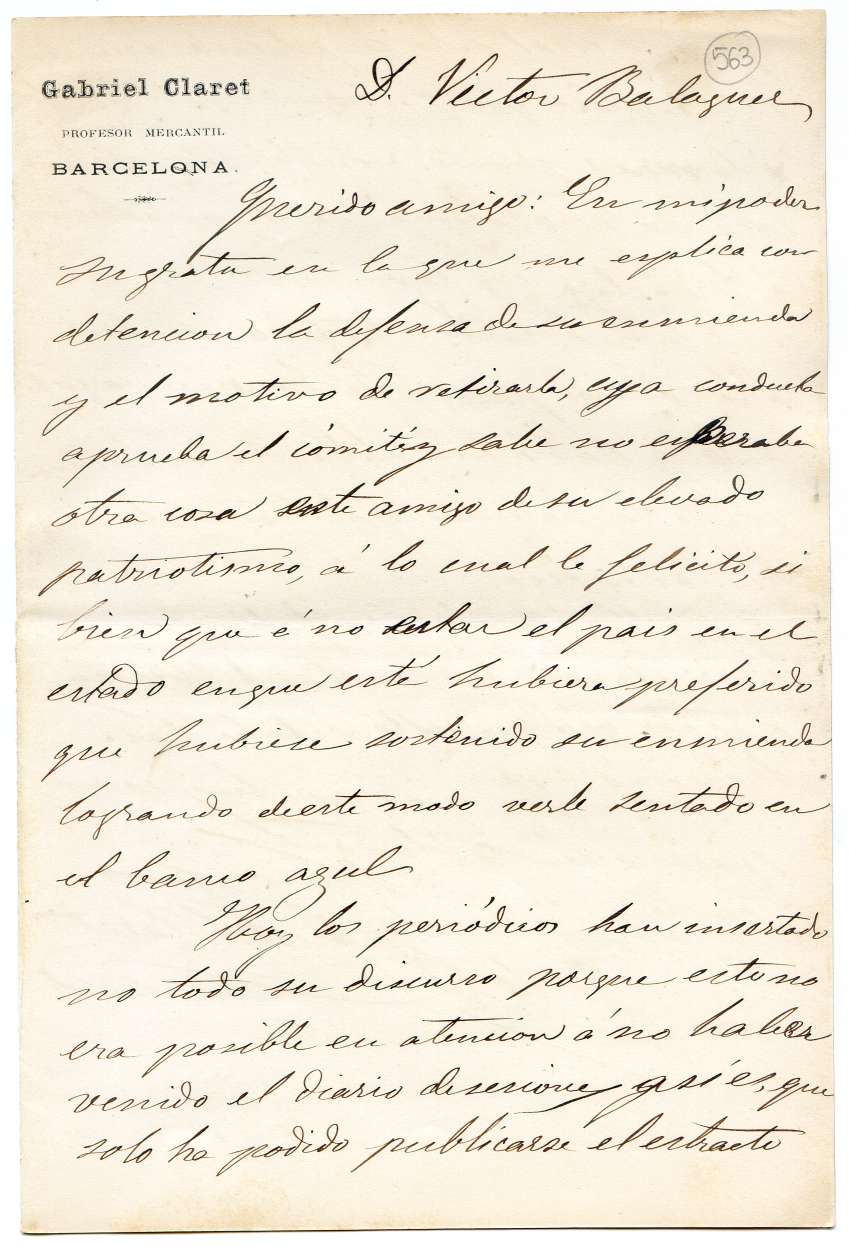 563
Gabriel Claret
PROFESOR MERCANTIL
BARCELONA.
D. Victor Balaguer
Querido amigo: En mi poder
su grata en la que me esplica con
detencion la defensa de su enmienda
y el motivo de retirarla, cuya conducta
aprueba el cómité y sabe no esperaba
otra cosa este amigo de su elevado
patriotismo, á lo cual le felicito, si
bien que é no estar el pais en el
estado en que esté hubiera preferido
que hubiese sostenido su enmienda
logrando de este modo verle sentado en
el banco azul
Hoy los periódicos han insertado
no todo su discurso porque esto no
era posible en atencion á no haber
venido el diario de sesiones y así es, que
solo ha podido publicarse el estracto